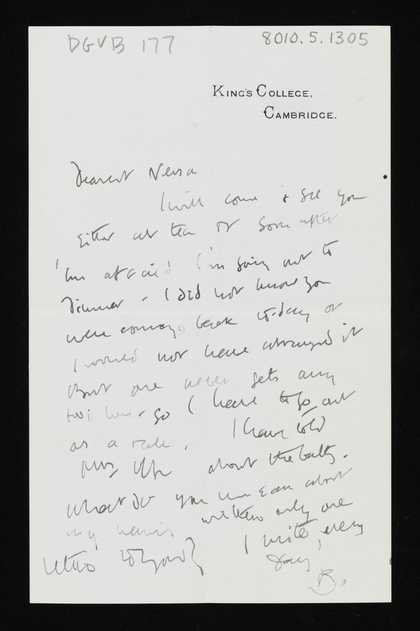 DGVB 177
8010.5.1305
KING'S COLLEGE,
CAMBRIDGE.
Dearest Nessa
I will come & see you
either at tea or soon after
I'm afraid I'm going out to
dinner - I did not know you
were coming back to-day or
I would not have arranged it
But one never gets any
so I have to go out
as a rule. I have told
Mrs about the bath.
What do you mean about
my having written only one
letter to you? I write every
day
B.